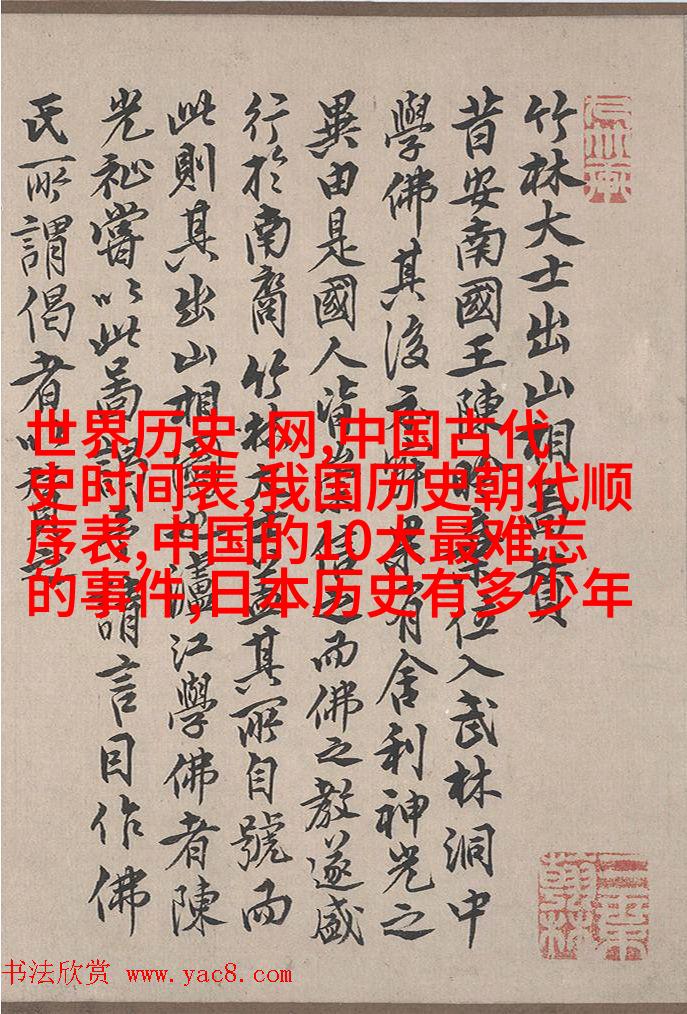 竹林大士出山相贊
昔安南國王陳位入武林洞中
學佛其後果有舍利神光之
異由是國人皆信之而佛之教遂盛
行於南裔竹林者蓋其所自號而
此則其出山相也瀘江學佛者陳
光祉嘗以此謂言曰作佛
氏所謂偈者
世界历史 网,中国古代
史时间表,我国历史朝代顺
序表,中国的10大最难忘
的事件,日本历史有多少年
书法欣赏 www.yac8.com